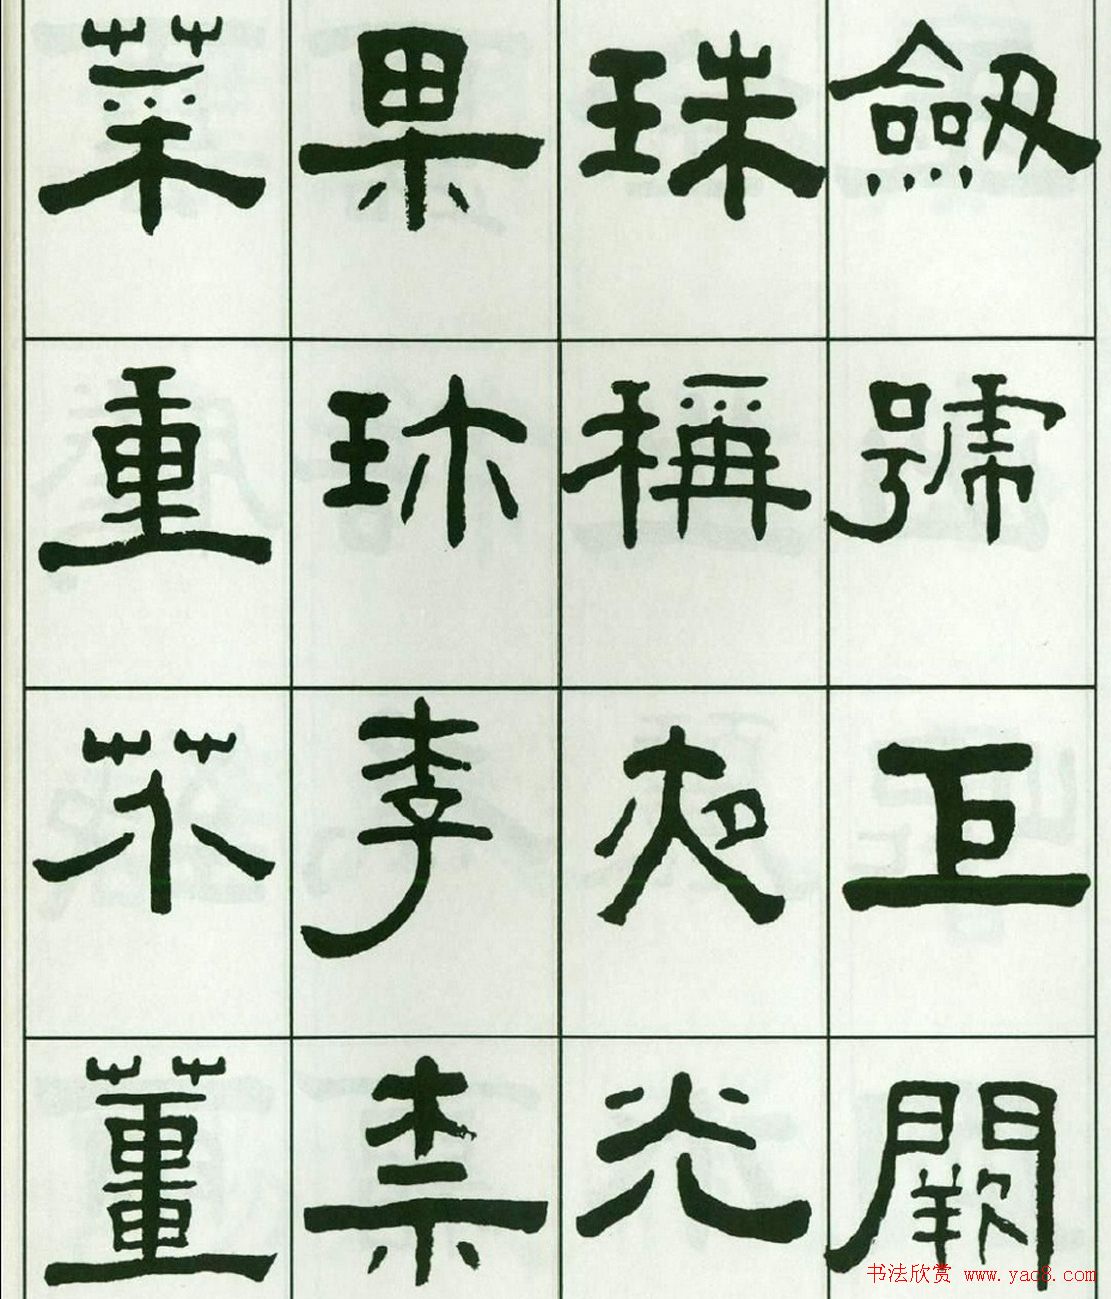 劒號巨闕
珠稱夜光
果珎李柰
菜重芥薑
书法欣赏 www.yac8.com